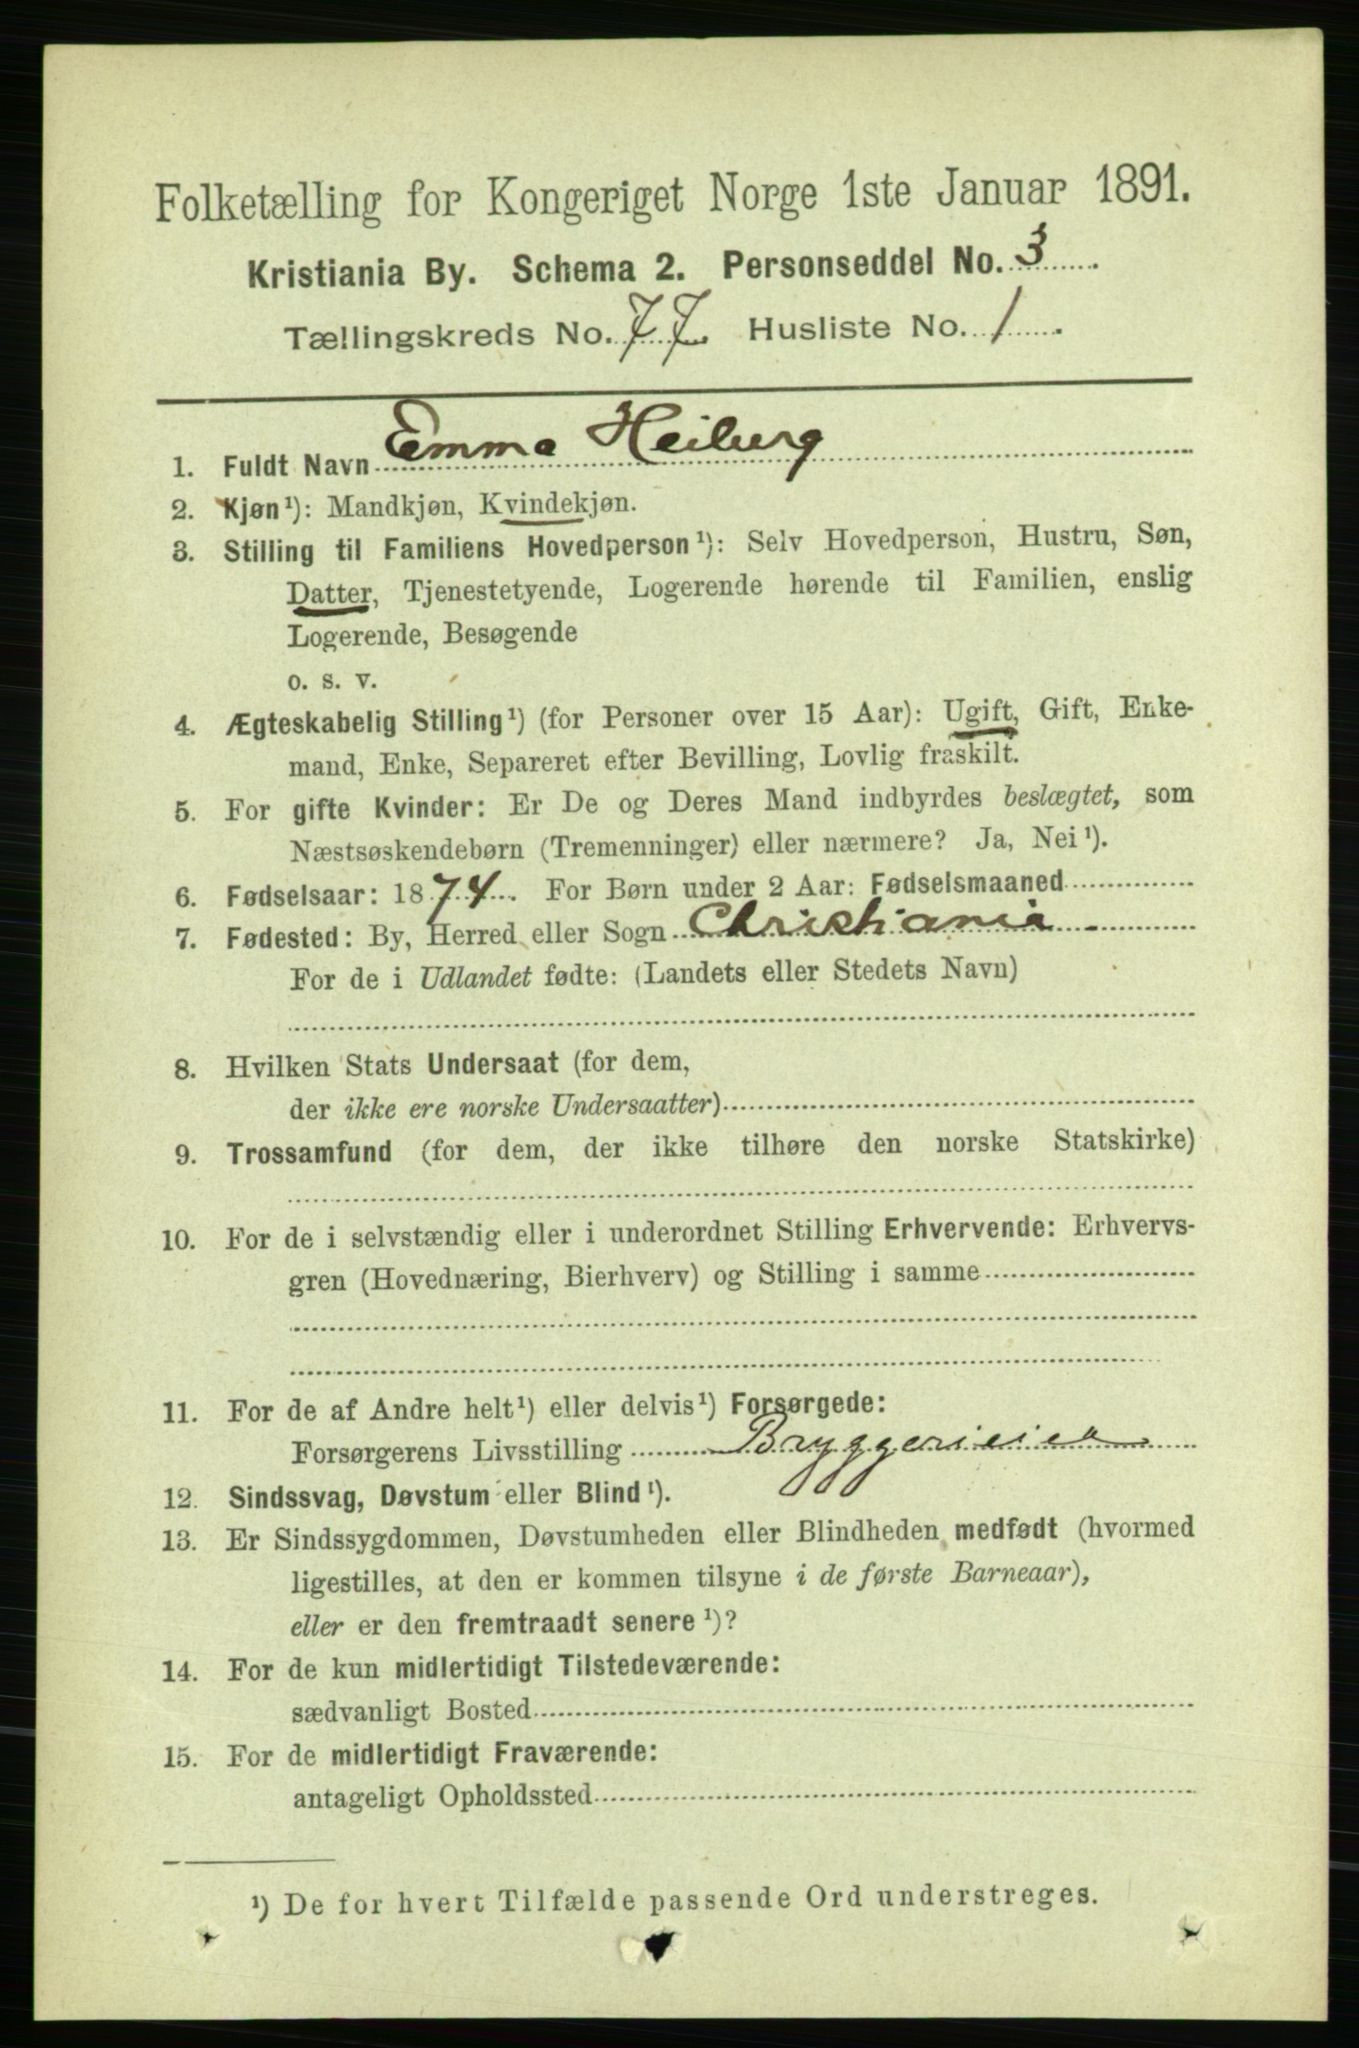 Folketælling for Kongeriget Norge 1ste Januar 1891.
Kristiania By. Schema 2. Personseddel No. 3
Tællingskreds No. 77. Husliste No. 1
1. Fuldt Navn Emma Heiberg
2. Kjøn¹): Mandkjøn, Kvindekjøn.
3. Stilling til Familiens Hovedperson¹): Selv Hovedperson, Hustru, Søn,
Datter, Tjenestetyende, Logerende hørende til Familien, enslig
Logerende, Besøgende
o. s. v.
4. Ægteskabelig Stilling¹) (for Personer over 15 Aar): Ugift, Gift, Enke-
mand, Enke, Separeret efter Bevilling, Lovlig fraskilt.
5. For gifte Kvinder: Er De og Deres Mand indbyrdes beslægtet, som
Næstsøskendebørn (Tremenninger) eller nærmere? Ja, Nei¹).
6. Fødselsaar: 1874. For Børn under 2 Aar: Fødselsmaaned
7. Fødested: By, Herred eller Sogn Christiania
For de i Udlandet fødte: (Landets eller Stedets Navn)
8. Hvilken Stats Undersaat (for dem,
der ikke ere norske Undersaatter)
9. Trossamfund (for dem, der ikke tilhøre den norske Statskirke)
10. For de i selvstændig eller i underordnet Stilling Erhvervende: Erhvervs-
gren (Hovednæring, Bierhverv) og Stilling i samme
11. For de af Andre helt¹) eller delvis¹) Forsørgede:
Forsørgerens Livsstilling Bryggerieier
12. Sindssvag, Døvstum eller Blind¹).
13. Er Sindssygdommen, Døvstumheden eller Blindheden medfødt (hvormed
ligestilles, at den er kommen tilsyne i de første Barneaar),
eller er den fremtraadt senere¹)?
14. For de kun midlertidigt Tilstedeværende:
sædvanligt Bosted
15. For de midlertidigt Fraværende:
antageligt Opholdssted
¹) De for hvert Tilfælde passende Ord understreges.